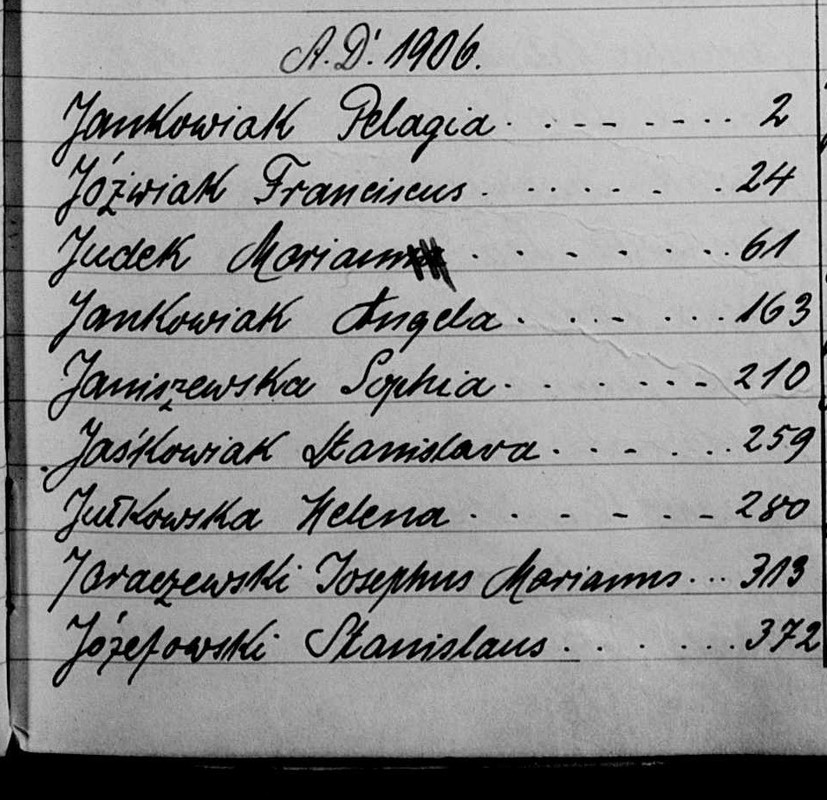 A.D. 1906.
Jankowiak Pelagia . . . - - - - . . 2
Jóźwiak Franciscus . . . . . . . . 24
Judek Mariann . . - . - . . . 61
Jankowiak Angela . . . - . . . 163
Janiszewska Sophia . . . . . . - 210
Jaśkowiak Stanislava . . - . . . 259
Jutkowska Helena . . . - - - - 280
Jaraczewski Josephus Marianus . . . 313
Józefowski Stanislaus . . . . . . . 372